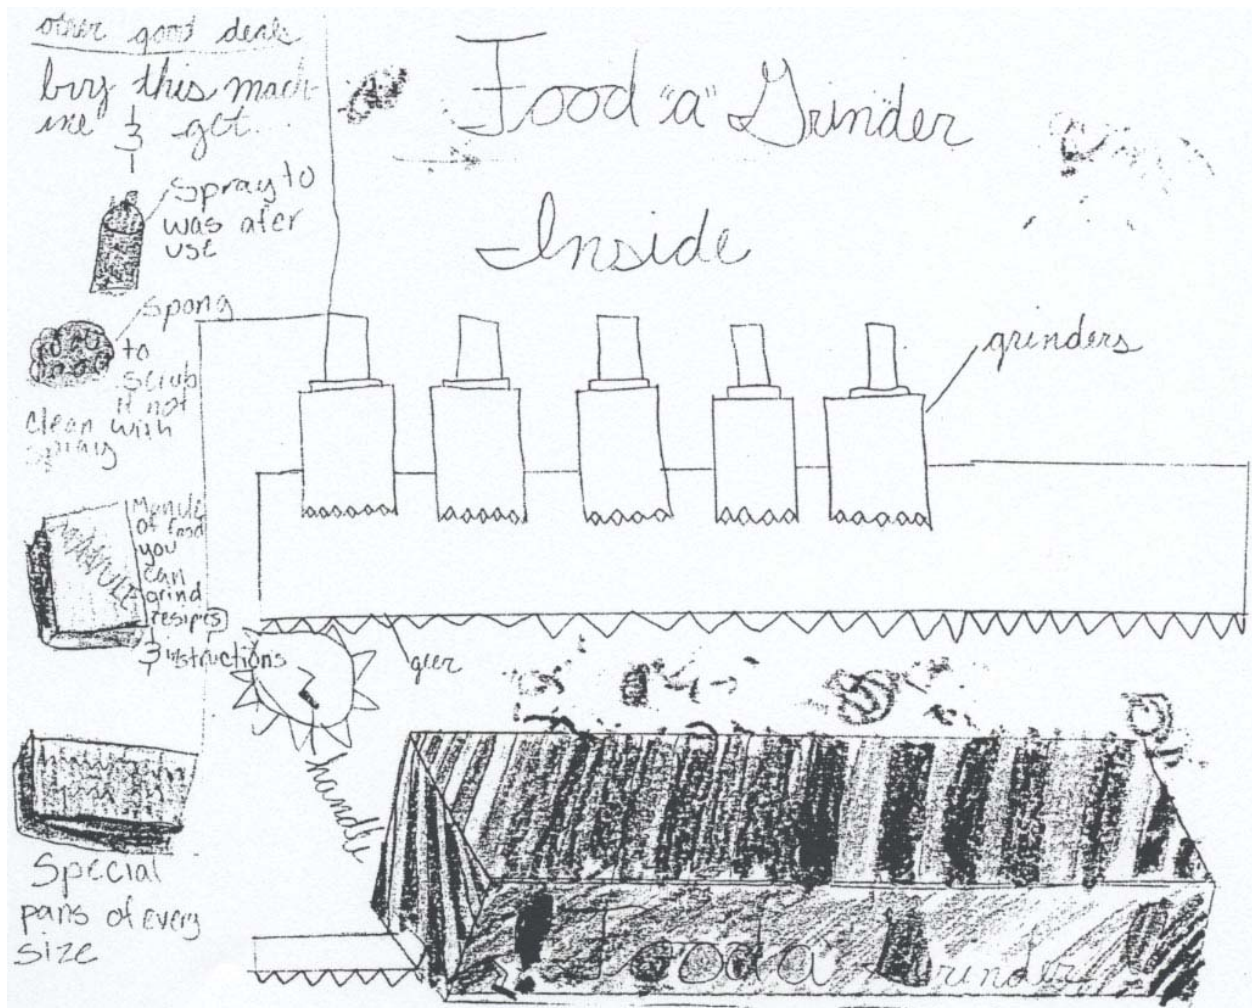 other good deals
buy this mach-
ine & get
spray to
was afer
use
spong
to
scrub
if not
clean with
spray
MANULE
Manule
of food
you
can
grind
resipes
& instructions
Special
pans of every
size
Food "a" Grinder
Inside
grinders
geer
handle
Food a Grinder